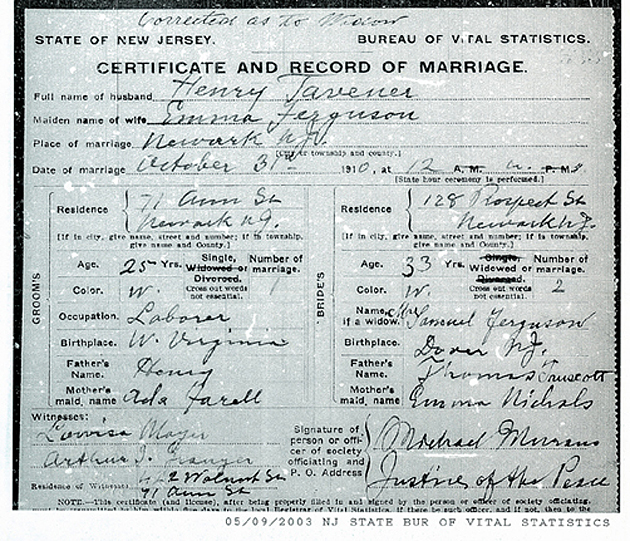 Corrected as to Widow
STATE OF NEW JERSEY. BUREAU OF VITAL STATISTICS.
CERTIFICATE AND RECORD OF MARRIAGE.
Full name of husband Henry Tavener
Maiden name of wife Emma Ferguson
Place of marriage Newark N.J.
[City or township and county.]
Date of marriage October 31st 1910, at 12 A. M. P. M.
[State hour ceremony is performed.]
GROOM'S
Residence 71 Ann St
Newark N.J.
[If in city, give name, street and number; if in township, give name and County.]
Age. 25 Yrs. Single, Widowed or Divorced. Number of marriage.
Color. W. Cross out words not essential.
Occupation. Laborer
Birthplace. W. Virginia
Father's Name. Henry
Mother's maid, name Ada Farell
BRIDE'S
Residence 128 Prospect St
Newark N.J.
[If in city, give name, street and number; if in township, give name and County.]
Age. 33 Yrs. Single, Widowed or Divorced. Number of marriage.
Color. W. Cross out words not essential. 2
Name, if a widow. Mrs Samuel Ferguson
Birthplace. Dover N.J.
Father's Name. Thomas Truscott
Mother's maid, name Emma Nichols
Witnesses:
Louisa Mayer
Arthur J.
Residence of Witnesses 2 Walnut St
71 Ann St
Signature of person or officer of society officiating and P. O. Address
Michael
Justice of the Peace
NOTE.—This certificate (and license), after being properly filled in and signed by the person or officer of society officiating,
05/09/2003 NJ STATE BUR OF VITAL STATISTICS